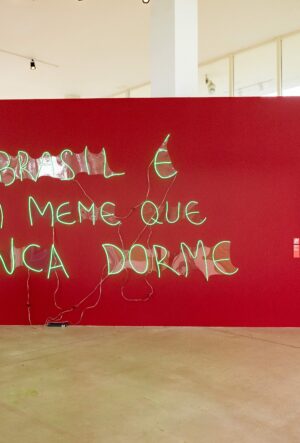 BRASIL É
M MEME QUE
NCA DORME